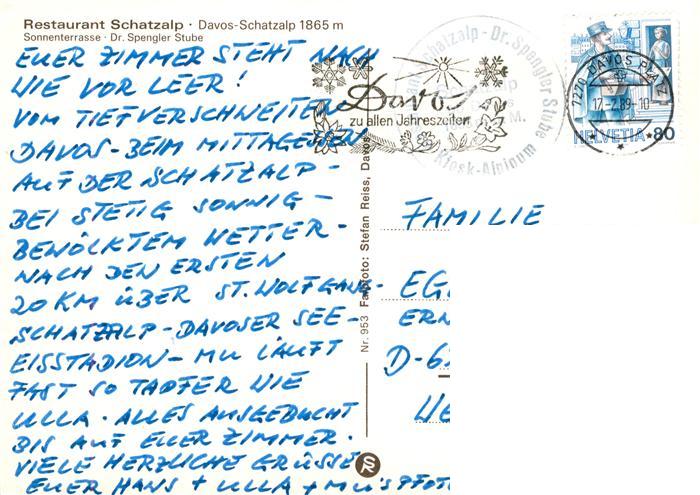 Restaurant Schatzalp · Davos-Schatzalp 1865 m
Sonnenterrasse · Dr. Spengler Stube
EUER ZIMMER STEHT NACH
WIE VOR LEER!
VOM TIEFVERSCHNEITEN
DAVOS - BEIM MITTAGESSEN
AUF DER SCHATZALP -
BEI STETIG SONNIG -
BEWÖLKTEM WETTER -
NACH DEN ERSTEN
20 KM ÜBER ST. WOLFGANG -
SCHATZALP - DAVOSER SEE -
EISSTADION - MU LÄUFT
FAST SO TAPFER WIE
ULLA. ALLES AUSGEBUCHT
BIS AUF EUER ZIMMER.
VIELE HERZLICHE GRÜSSE
EUER HANS + ULLA + MU'S PFOT
Nr. 953 Farbfoto: Stefan Reiss, Davos
SR
Schatzalp - Dr. Spengler Stube
Kiosk-Alpinum
Davos
zu allen Jahreszeiten
7270 DAVOS PLATZ
17.-2.89-10
HELVETIA 80
FAMILIE
EG
ERN
D-6
WE